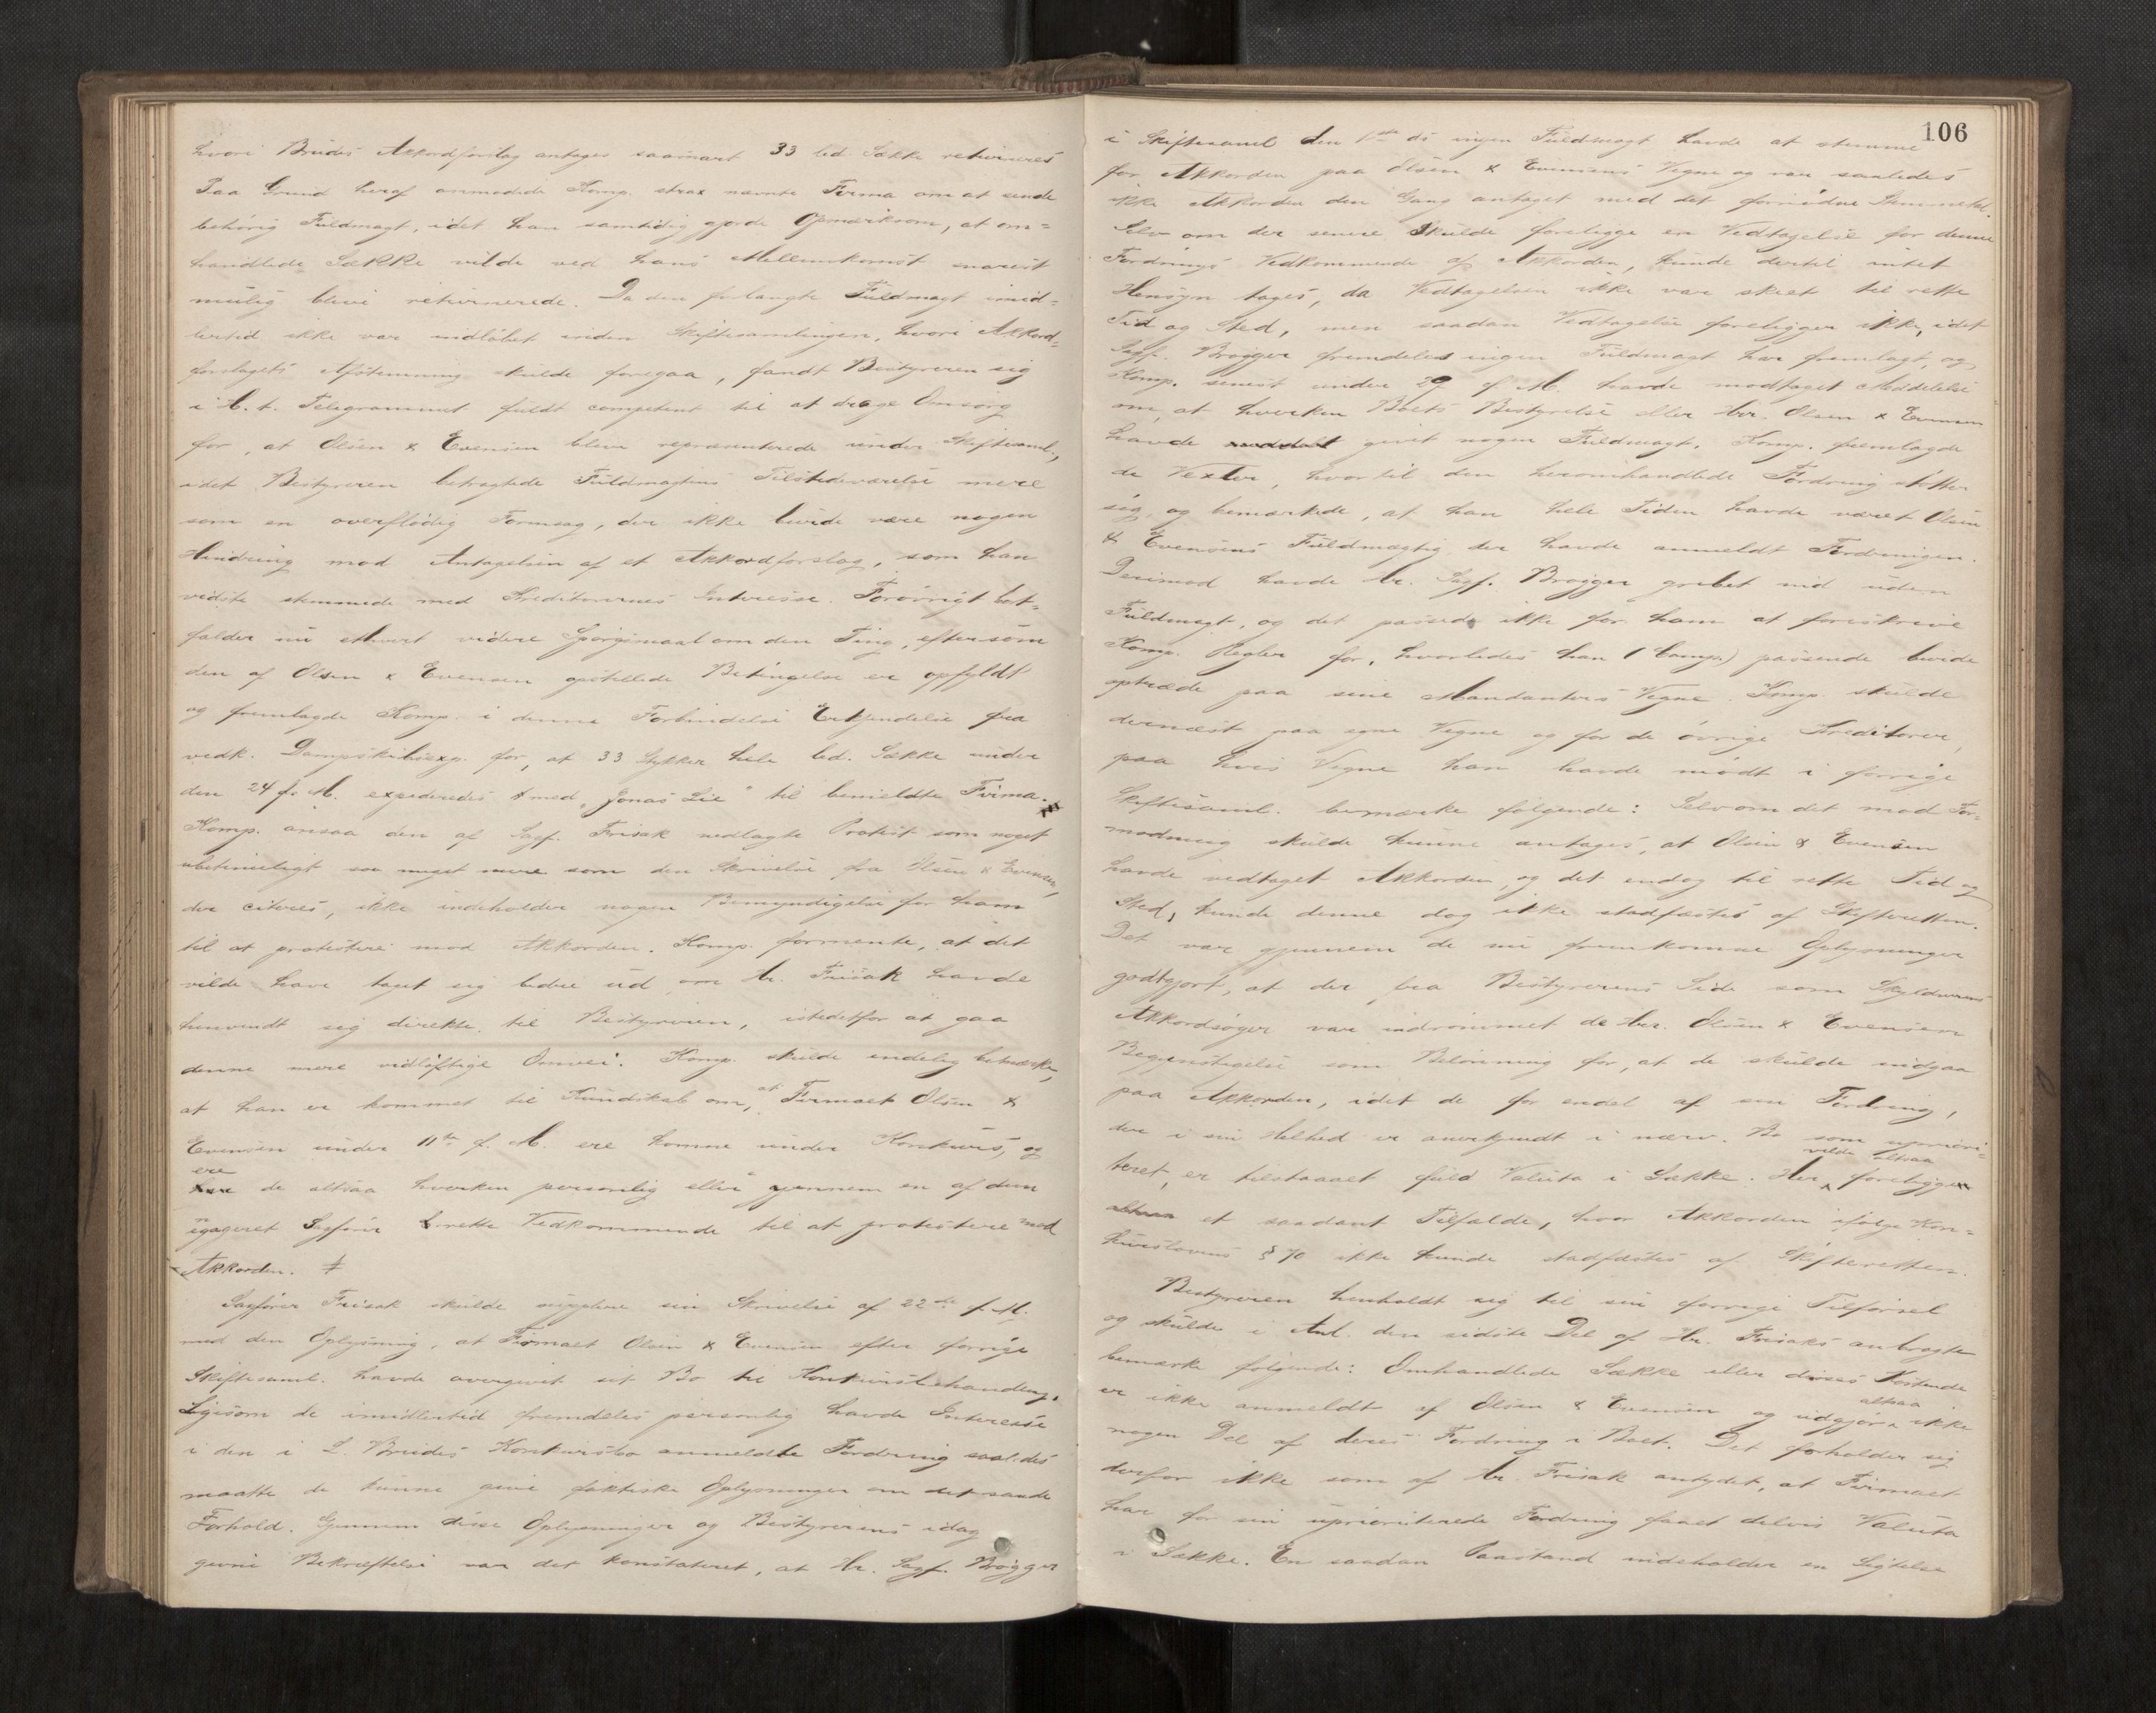 hvori Bruds Akkordforslag antages saasnart 33 led. Sække returneres
Paa Grund heraf anmodede Komp. strax nævnte Firma om at sende
behörig Fuldmagt, idet han samtidig gjorde Opmærksom, at om=
handlede Sække vilde ved hans Mellemkomst snarest
mulig blive returnerede. Da den forlangte Fuldmagt imid=
lertid ikke var indløbet inden Skiftesamlingen, hvori Akkord=
forslagets Afstemning skulde foregaa, fandt Bestyreren sig
i H. t. Telegrammet fuldt competent til at drage Omsorg
for, at Olsen & Evensen blev repræsenterede under Skiftesaml.,
idet Bestyreren betragtede Fuldmagtens Tilstedeværelse mere
som en overflödig Formsag, der ikke burde være nogen
Hindring mod Antagelsen af et Akkordforslag, som han
vidste stemmede med Kreditorernes Interesse. Forövrigt bort=
falder nu ethvert videre Spörgsmaal om den Ting, eftersom
den af Olsen & Evensen opstillede Betingelse er opfyldt
og fremlagde Komp. i denne Forbindelse Erkjendelse fra
vedk. Dampskibsexp. for, at 33 Stykker hele led. Sække under
den 24 f. M. expederedes med "Jonas Lie" til bemeldte Firma.
Komp. ansaa den af Sagf. Frisak nedlagte Protest som noget
ubetimeligt saa meget mere som den Skrivelse fra Olsen & Evensen,
der citeres, ikke indeholder nogen Bemyndigelse for ham
til at protestere mod Akkorden. Komp. formente, at det
vilde have taget sig bedre ud om Hr. Frisak havde
henvendt sig direkte til Bestyreren, istedetfor at gaa
denne mere vidlöftige Omvei. Komp. skulde endelig bemærke,
at han er kommet til Kundskab om, at Firmaet Olsen &
Evensen under 11te f. M. ere komne under Konkurs, og
ere de altsaa hverken personlig eller gjennem en af dem
engageret Sagförer rette Vedkommende til at protestere mod
Akkorden. #
Sagförer Frisak skulde supplere sin Skrivelse af 22de f. M.
med den Oplysning, at Firmaet Olsen & Evensen efter forrige
Skiftesaml. havde overgivet sit Bo til Konkursbehandling.
Ligesom de imidlertid fremdeles personlig havde Interesse
i den i L. Bruds Konkursbo anmeldte Fordring saaledes
maatte de kunne give faktiske Oplysninger om det sande
Forhold. Gjennem disse Oplysninger og Bestyrerens idag
givne Bekræftelse var det konstateret, at Hr. Sagf. Brøgger
106
i Skiftesaml den 1ste ds ingen Fuldmagt havde at stemme
for Akkorden paa Olsen & Evensens Vegne og var saaledes
ikke Akkorden den Gang antaget med det fornødne Stemmetal.
Selv om der senere skulde foreligge en Vedtagelse for denne
Fordrings Vedkommende af Akkorden, kunde dertil intet
Hensyn tages, da Vedtagelsen ikke var skeet til rette
Tid og Sted, men saadan Vedtagelse foreligger ikke, idet
Sagf. Brøgger fremdeles ingen Fuldmagt har fremlagt, og
Komp. senest under 29 f. M. havde modtaget Meddelelse
om, at hverken Boets Bestyrelse eller Hrr. Olsen & Evensen
havde givet nogen Fuldmagt. Komp. fremlagde
de Vexler, hvortil den heromhandlede Fordring støtter
sig, og bemærkede, at han hele Tiden havde været Olsen
& Evensens Fuldmægtig, der havde anmeldt Fordringen.
Derimod havde Hr. Sagf. Brøgger grebet ind uden
Fuldmagt, og det passede ikke for ham at foreskrive
Komp. Regler for, hvorledes han (Comp.) passende burde
optræde paa sine Mandanters Vegne. Komp skulde
dernæst paa egne Vegne og for de övrige Kreditorer,
paa hvis Vegne han havde mödt i forrige
Skiftesaml. bemærke fölgende: Selv om det mod For=
modning skulde kunne antages, at Olsen & Evensen
havde vedtaget Akkorden, og det endog til rette Tid og
Sted, kunde denne dog ikke stadfæstes af Skifteretten.
Det var gjennem de nu fremkomne Oplysninger
godtgjort, at der fra Bestyrerens Side som Skyldnerens
Akkordsöger var indrömmet de Hrr. Olsen & Evensen
Begunstigelse som Belönning for, at de skulde indgaa
paa Akkorden, idet de for endel af sin Fordring,
der i sin Helhed er anerkjendt i nærv. Bo som upriori=
teret, er tilstaaet fuld Valuta i Sække. Her vilde altsaa foreligge
et saadant Tilfælde, hvor Akkorden ifölge Kon=
kurslovens § 70 ikke kunde stadfæstes af Skifteretten.
Bestyreren henholdt sig til sin forrige Tilförsel
og skulde i Anl. den sidste Del af Hr. Frisaks anbragte
bemærke fölgende: Omhandlede Sække eller disses Kostende
er ikke anmeldt af Olsen & Evensen og udgjör altsaa ikke
nogen Del af deres Fordring i Boet. Det forholder sig
derfor ikke som af Hr. Frisak antydet, at Firmaet
har for sin uprioriterede Fordring faaet delvis Valuta
i Sække. En saadan Paastand indeholder en Sigtelse